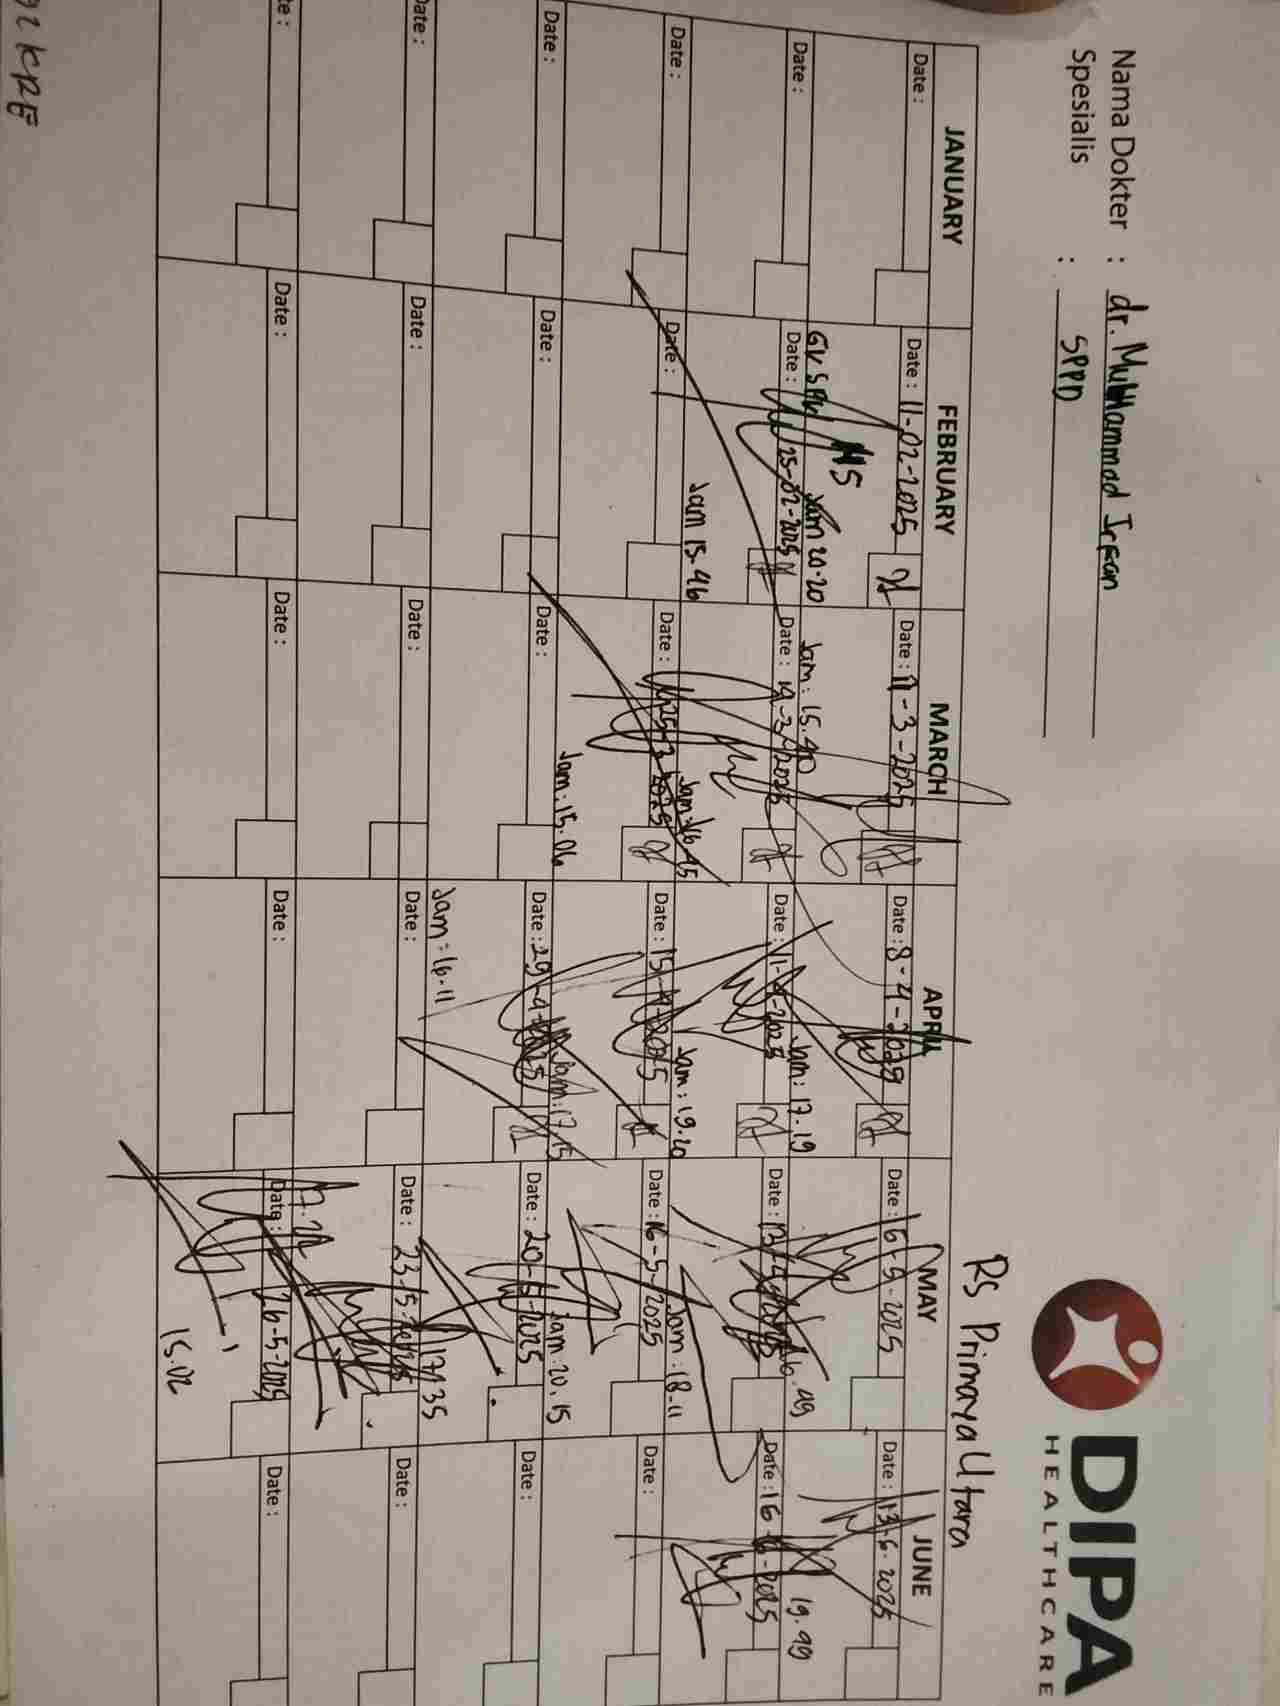 DIPA
HEALTHCARE
Nama Dokter : dr. Muhammad Irfan
Spesialis : SPPD
RS Primaya Utara
JANUARY FEBRUARY MARCH APRIL MAY JUNE
Date : Date : 11-02-2025 Date : 11-3-2025 Date : 8-4-2025 Date : 16-5-2025 Date : 13-6-2025
GV SPV MS
Jam 20.20 Jam : 15.40 Jam : 17.19 19.49
Date : Date : 25-02-2025 Date : 19-3-2025 Date : 11-4-2025 Date : 13-5-2025 Date : 16-6-2025
Jam 15.46 Jam : 16.45 Jam : 19.20 Jam : 18-11
Date : Date : Date : 25-3-2025 Date : 15-4-2025 Date : 16-5-2025 Date :
Jam : 15.06 Jam : 17.15 Jam : 20.15
Date : Date : Date : Date : 29-4-2025 Date : 20-5-2025 Date :
Jam : 16.11 17.35
Date : Date : Date : Date : Date : 23-5-2025 Date :
Date : Date : Date : Date : 26-5-2025 Date :
15.02